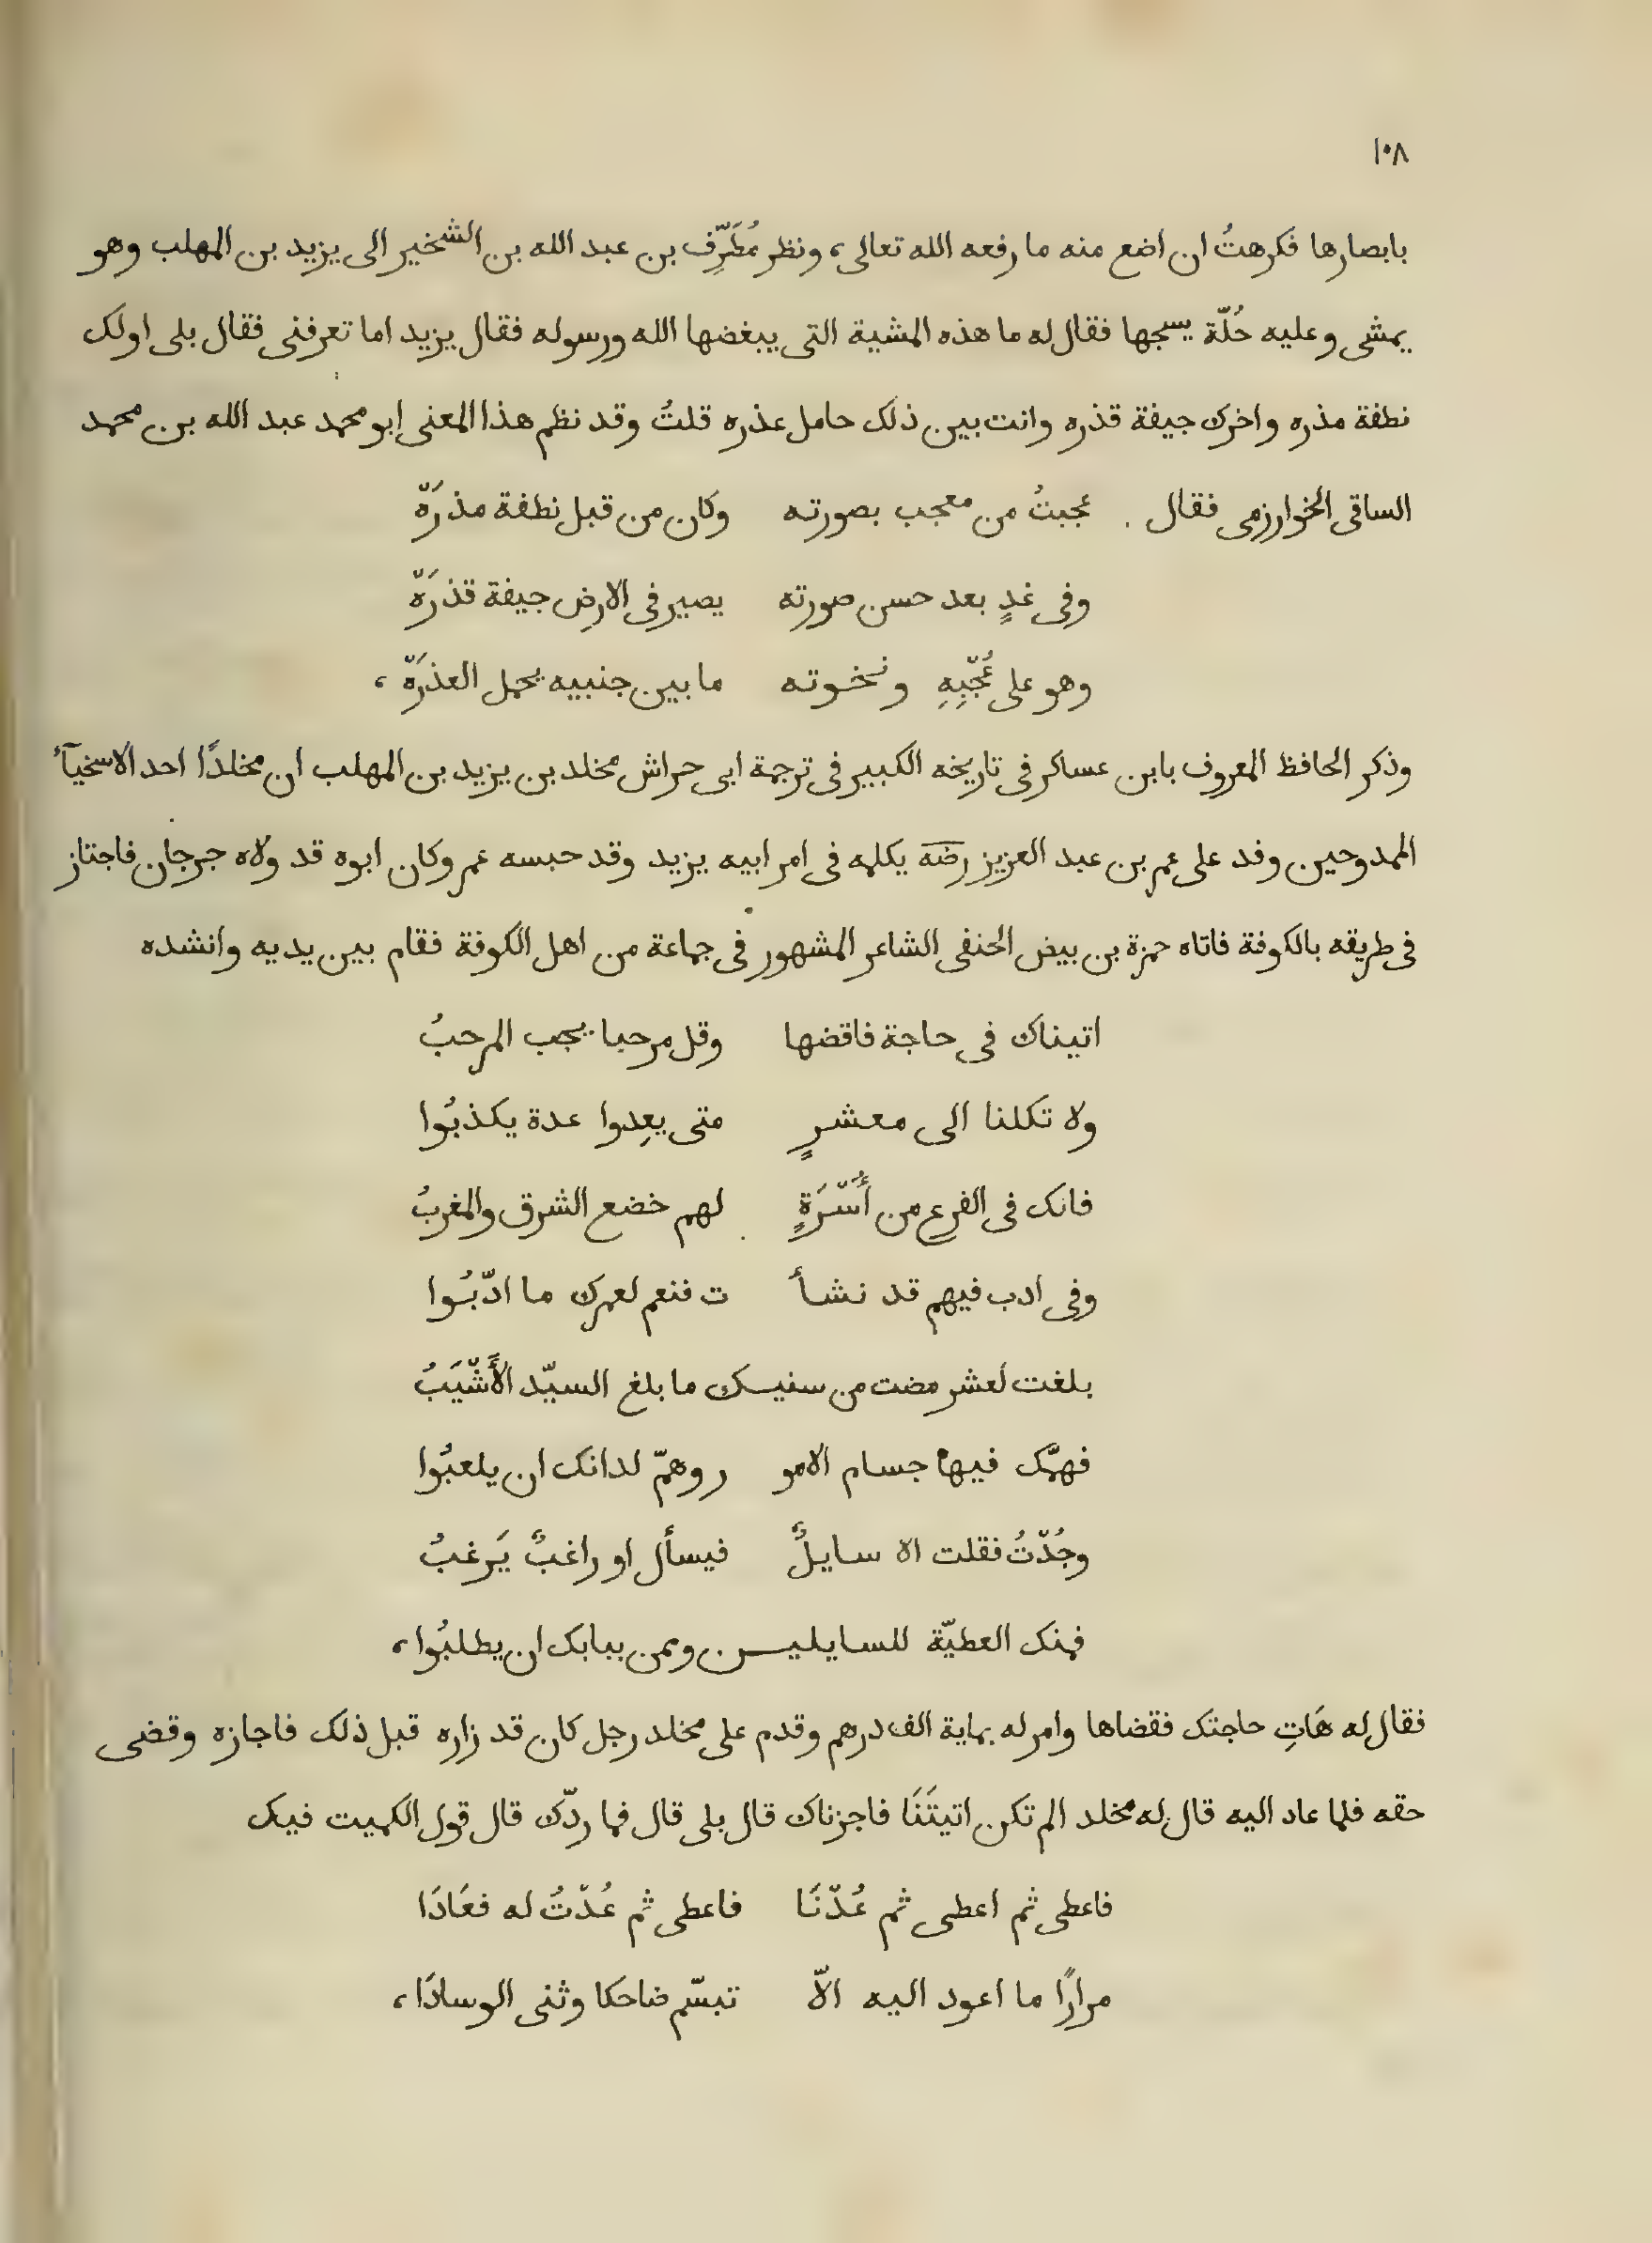 ١٠٨
بابصارها فكرهتُ ان اضع منه ما رفعه الله تعالى، ونظر مُطَرِّف بن عبد الله بن الشخير الى يزيد بن المهلب وهو
يمشى وعليه حُلّة يسحبها فقال له ما هذه المشية التى يبغضها الله ورسوله فقال يزيد اما تعرفنى فقال بلى اولك
نطفة مذره واخرك جيفة قذره وانت بين ذلك حامل عذره قلتُ وقد نظم هذا المعنى ابو محمد عبد الله بن محمد
الساقى الخوارزمى فقال . عجبتُ من معجب بصورته وكان من قبل نطفة مذرَهّ
وفى غدٍ بعد حسن صورته يصير فى الارض جيفة قذرَهّ
وهو على عُجّبِهِ ونخوته ما بين جنبيه يحمل العذرَهّ،
وذكر الحافظ المعروف بابن عساكر فى تاريخه الكبير فى ترجمة ابى حراش مخلد بن يزيد بن المهلب ان مخلدًا احد الاسخيآء
الممدوحين وفد على عمر بن عبد العزيز رضه يكلمه فى امر ابيه يزيد وقد حبسه عمر وكان ابوه قد ولاه جرجان فاجتاز
فى طريقه بالكوفة فاتاه حمزة بن بيض الحنفى الشاعر المشهور فى جماعة من اهل الكوفة فقام بين يديه وانشده
اتيناك فى حاجة فاقضها وقل مرحبا يجب المرحبُ
ولا تكلنا الى معشرٍ متى يعِدوا عدة يكذبُوا
فانك فى الفرع من أُسّرَةٍ لهم خضع الشرق والمغربُ
وفى ادب فيهم قد نشأ ت فنعم لعمرك ما ادّبُوا
بلغت لعشر مضت من سنيـك ما بلغ السيّد الأَشّيَبُ
فهمّك فيها جسام الامو ر وهمّ لدانك ان يلعبُوا
وجُدّتُ فقلت الا سايلٌ فيسأل او راغبٌ يَرغبُ
فمنك العطيّة للسايليـن وممن ببابك ان يطلبُوا،
فقال له هَاتِ حاجتك فقضاها وامر له بماية الف درهم وقدم على مخلد رجل كان قد زاره قبل ذلك فاجازه وقضى
حقه فلما عاد اليه قال له مخلد الم تكن اتيتَنَا فاجزناك قال بلى قال فما ردّك قال قول الكميت فيك
فاعطى ثم اعطى ثم عُدّنَا فاعطى ثم عُدّتُ له فعَادَا
مرارًا ما اعود اليه الاّ تبسّم ضاحكا وثنى الوسادَا،